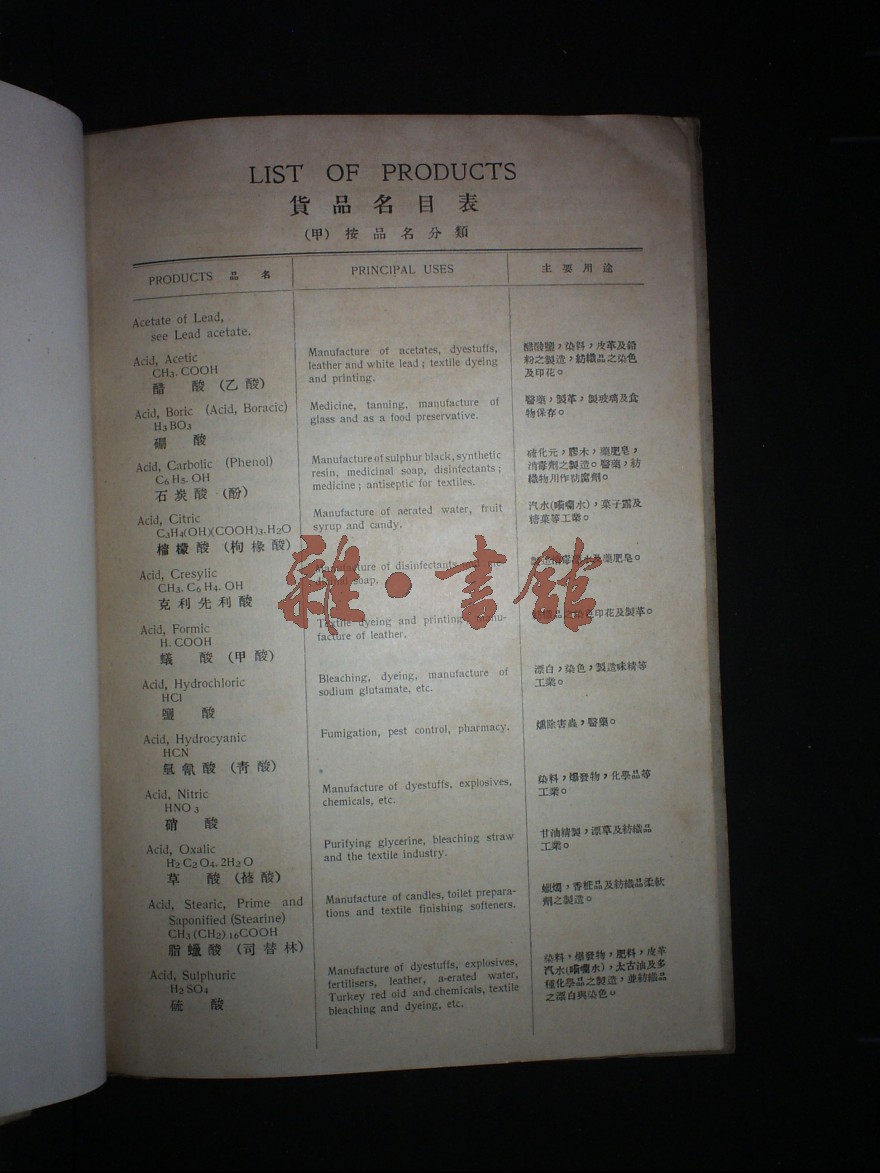 LIST OF PRODUCTS
貨品名目表
(甲) 按品名分類
PRODUCTS 品 名
PRINCIPAL USES
主要用途
Acetate of Lead,
see Lead acetate.
Acid, Acetic
CH3. COOH
醋 酸 (乙酸)
Manufacture of acetates, dyestuffs,
leather and white lead; textile dyeing
and printing.
醋酸鹽，染料，皮革及鉛
粉之製造，紡織品之染色
及印花。
Acid, Boric (Acid, Boracic)
H3BO3
硼 酸
Medicine, tanning, manufacture of
glass and as a food preservative.
醫藥，製革，製玻璃及食
物保存。
Acid, Carbolic (Phenol)
C6H5. OH
石炭酸 (酚)
Manufacture of sulphur black, synthetic
resin, medicinal soap, disinfectants;
medicine; antiseptic for textiles.
硫化元，膠木，藥肥皂，
消毒劑之製造。醫藥，紡
織物用作防腐劑。
Acid, Citric
C3H4(OH)(COOH)3.H2O
檸檬酸 (枸橼酸)
Manufacture of aerated water, fruit
syrup and candy.
汽水(嗬囒水)，菓子露及
糖菓等工業。
Acid, Cresylic
CH3. C6H4. OH
克利先利酸
Manufacture of disinfectants and
soap.
製造消毒藥水及藥肥皂。
Acid, Formic
H. COOH
蟻 酸 (甲酸)
Textile dyeing and printing, manu-
facture of leather.
紡織品之染色印花及製革。
Acid, Hydrochloric
HCl
鹽 酸
Bleaching, dyeing, manufacture of
sodium glutamate, etc.
漂白，染色，製造味精等
工業。
Acid, Hydrocyanic
HCN
氫氰酸 (青酸)
Fumigation, pest control, pharmacy.
燻除害蟲，醫藥。
Acid, Nitric
HNO3
硝 酸
Manufacture of dyestuffs, explosives,
chemicals, etc.
染料，爆發物，化學品等
工業。
Acid, Oxalic
H2C2O4. 2H2O
草 酸 (蓚酸)
Purifying glycerine, bleaching straw
and the textile industry.
甘油精製，漂草及紡織品
工業。
Acid, Stearic, Prime and
Saponified (Stearine)
CH3(CH2)16COOH
脂蠟酸 (司替林)
Manufacture of candles, toilet prepara-
tions and textile finishing softeners.
蠟燭，香粧品及紡織品柔軟
劑之製造。
Acid, Sulphuric
H2SO4
硫 酸
Manufacture of dyestuffs, explosives,
fertilisers, leather, a-erated water,
Turkey red oid and chemicals, textile
bleaching and dyeing, etc.
染料，爆發物，肥料，皮革
汽水(嗬囒水)，太古油及多
種化學品之製造，並紡織品
之漂白與染色。
雜·書館